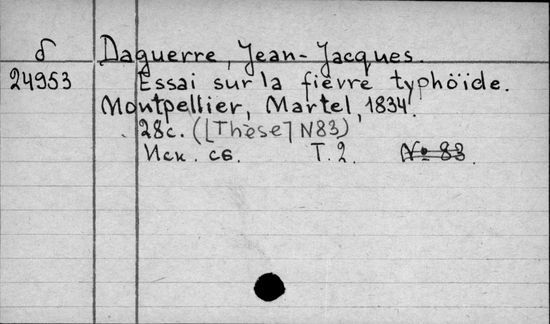 δ Daguerre, Jean-Jacques.
24953 Essai sur la fièvre typhöide.
Montpellier, Martel, 1834.
28c. ([Thèse] N83)
Иск. св. Т. 2. № 83.